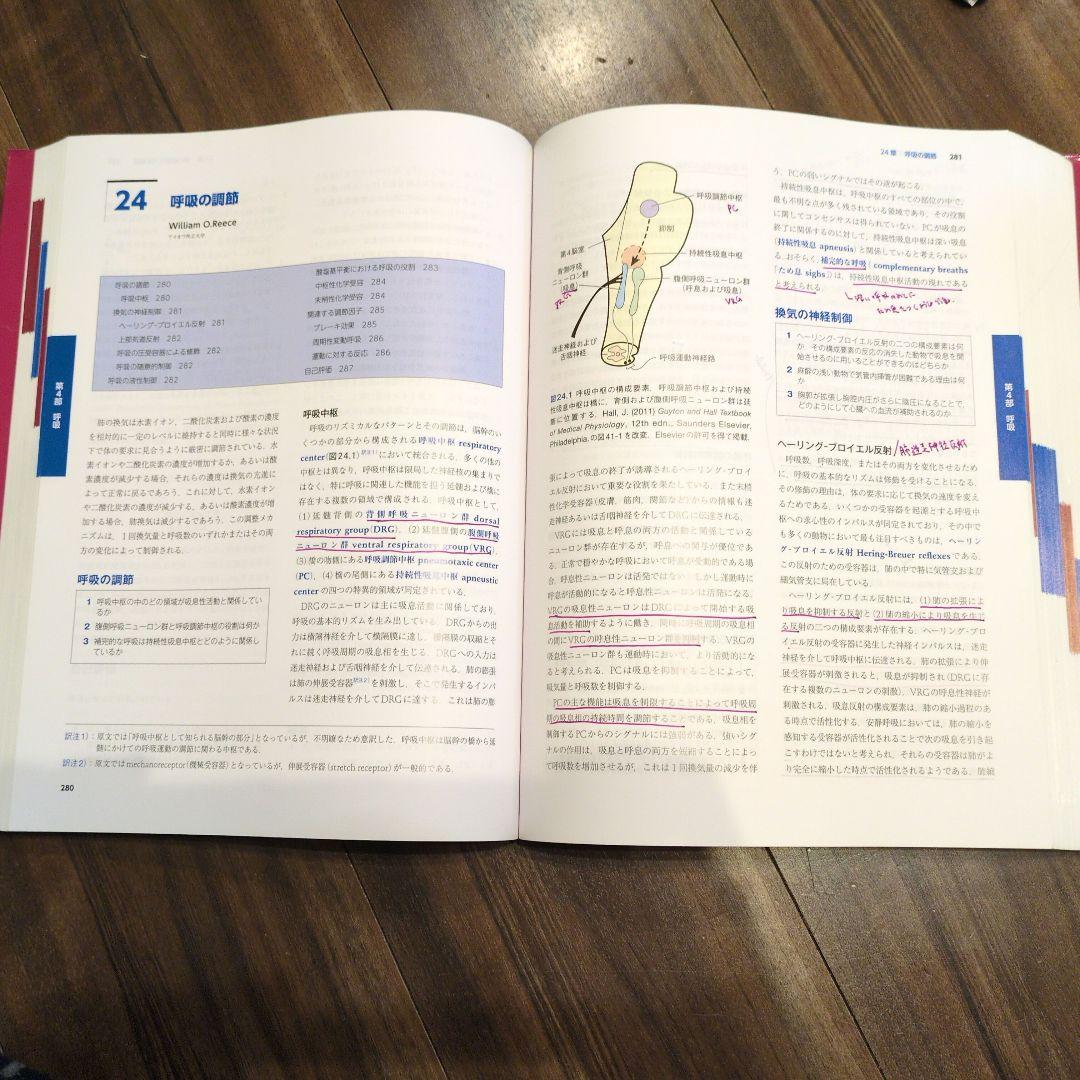 24 呼吸の調節
William O.Reece
アイオワ州立大学
呼吸の調節 280
呼吸中枢 280
換気の神経制御 281
ヘーリング-ブロイエル反射 281
上部気道反射 282
呼吸の圧受容器による修飾 282
呼吸の随意的制御 282
呼吸の液性制御 282
酸塩基平衡における呼吸の役割 283
中枢性化学受容 284
末梢性化学受容 284
関連する調節因子 285
ブレーキ効果 285
周期性変動呼吸 286
運動に対する反応 286
自己評価 287
第4部 呼吸
肺の換気は水素イオン、二酸化炭素および酸素の濃度
を相対的に一定のレベルに維持すると同時に様々な状況
下で体の要求に見合うように厳密に調節されている。水
素イオンや二酸化炭素の濃度が増加するか、あるいは酸
素濃度が減少する場合、それらの濃度は換気の亢進によ
って正常に戻るであろう。これに対して、水素イオン
や二酸化炭素の濃度が減少する、あるいは酸素濃度が増
加する場合、肺換気は減少するであろう。この調整メカ
ニズムは、1回換気量と呼吸数のいずれかまたはその両
方の変化によって制御される。
呼吸の調節
1 呼吸中枢の中のどの領域が吸息性活動と関係してい
るか
2 腹側呼吸ニューロン群と呼吸調節中枢の役割は何か
3 補完的な呼吸は持続性吸息中枢とどのように関係し
ているか
呼吸中枢
呼吸のリズミカルなパターンとその調節は、脳幹のい
くつかの部分から構成される呼吸中枢 respiratory
center(図24.1)訳注1)において統合される。多くの他の
中枢とは異なり、呼吸中枢は限局した神経核の集まりで
はなく、特に呼吸に関連した機能を担う延髄および橋に
存在する複数の領域で構成される。呼吸中枢として、
(1)延髄背側の背側呼吸ニューロン群 dorsal
respiratory group(DRG)、(2)延髄腹側の腹側呼吸
ニューロン群 ventral respiratory group(VRG)、
(3)橋の吻側にある呼吸調節中枢 pneumotaxic center
(PC)、(4)橋の尾側にある持続性吸息中枢 apneustic
center の四つの特異的領域が同定されている。
DRGのニューロンは主に吸息活動に関係しており、
呼吸の基本的なリズムを生み出している。DRGからの出
力は横隔神経を介して横隔膜に達し、横隔膜の収縮とそ
れに続く呼吸周期の吸息相を生じる。DRGへの入力は
迷走神経および舌咽神経を介して伝達される。肺の膨張
は肺の伸展受容器訳注2)を刺激し、そこで発生するインパ
ルスは迷走神経を介してDRGに達する。これは肺の膨
訳注1）：原文では「呼吸中枢として知られる脳幹の部分」となっているが、不明瞭なため意訳した。呼吸中枢は脳幹の橋から延
髄にかけての呼吸運動の調節に関わる中枢である。
訳注2）：原文ではmechanoreceptor(機械受容器)となっているが、伸展受容器(stretch receptor)が一般的である。
280
24章 呼吸の調節 281
呼吸調節中枢
PC
抑制
第4脳室
背側呼吸
ニューロン群
(吸息)
DRG
持続性吸息中枢
腹側呼吸ニューロン群
(呼息および吸息)
VRG
迷走神経および
舌咽神経
呼吸運動神経路
図24.1 呼吸中枢の構成要素。呼吸調節中枢および持続
性吸息中枢は橋に、背側および腹側呼吸ニューロン群は延
髄に位置する。Hall, J. (2011) Guyton and Hall Textbook
of Medical Physiology, 12th edn., Saunders Elsevier,
Philadelphia.の図41-1を改変。Elsevierの許可を得て掲載。
張によって吸息の終了が誘導されるヘーリング-ブロイ
エル反射において重要な役割を果たしている。また末梢
性化学受容器(皮膚、筋肉、関節など)からの情報も迷
走神経あるいは舌咽神経を介してDRGに伝達される。
VRGには吸息と呼息の両方の活動と関係している
ニューロン群が存在するが、呼息への関与が優位であ
る。正常で穏やかな呼吸において呼息が受動的である場
合、呼息性ニューロンは活発ではない。しかし運動時に
呼息が活動的になると呼息性ニューロンは活発になる。
VRGの吸息性ニューロンはDRGによって開始する吸
息活動を補助するように働き、同時に呼吸周期の吸息相
の間にVRGの呼息性ニューロン群を抑制する。VRGの
吸息性ニューロン群も運動時において、より活動的にな
ると考えられる。PCは吸息を抑制することによって、
吸気量と呼吸数を制御する。
PCの主な機能は吸息を制限することによって呼吸周
期の吸息相の持続時間を調節することである。吸息相を
制御するPCからのシグナルには強弱がある。強いシグ
ナルの作用は、吸息と呼息の両方を短縮することによっ
て呼吸数を増加させるが、これは1回換気量の減少を伴
う。PCの弱いシグナルではその逆が起こる。
持続性吸息中枢は、呼吸中枢のすべての部位の中で、
最も不明な点が多く残されている領域であり、その役割
に関してコンセンサスは得られていない。PCが吸息の
終了に関係するのに対して、持続性吸息中枢は深い吸息
(持続性吸息 apneusis)と関係していると考えられてい
る。おそらく、補完的な呼吸(complementary breaths
[ため息 sighs])は、持続性吸息中枢活動の現れである
と考えられる。
換気の神経制御
1 ヘーリング-ブロイエル反射の二つの構成要素は何
か。その構成要素の反応の消失した動物で吸息を開
始させるのに用いることができるのはどちらか
2 麻酔の浅い動物で気管内挿管が困難である理由は何
か
3 胸郭が拡張し胸腔内圧がさらに陰圧になることで、
どのようにして心臓への血流が補助されるのか
ヘーリング-ブロイエル反射/肺迷走神経反射
呼吸数、呼吸深度、またはその両方を変化させるため
に、呼吸の基本的なリズムは修飾を受けることになる。
その修飾の理由は、体の要求に応じて換気の速度を変え
るためである。いくつかの受容器を起源とする呼吸中
枢への求心性のインパルスが同定されており、その中で
も多くの動物において最も注目すべきものは、ヘーリン
グ-ブロイエル反射 Hering-Breuer reflexesである。
この反射のための受容器は、肺の中で特に気管支および
細気管支に局在している。
ヘーリング-ブロイエル反射には、(1)肺の拡張によ
り吸息を抑制する反射と(2)肺の縮小により吸息を生じ
る反射の二つの構成要素が存在する。ヘーリング-ブロ
イエル反射の受容器に発生した神経インパルスは、迷走
神経を介して呼吸中枢に伝達される。肺の拡張により伸
展受容器が刺激されると、吸息が抑制され(DRGに存
在する複数のニューロンの刺激)、VRGの呼息性神経が
刺激される。吸息反射の構成要素は、肺の縮小過程のあ
る時点で活性化する。安静呼吸においては、肺の縮小を
感知する受容器が活性化されることで次の吸息を引き起
こすわけではないと考えられ、それらの受容器は肺がよ
り完全に縮小した時点で活性化されるようである。肺細
第4部 呼吸